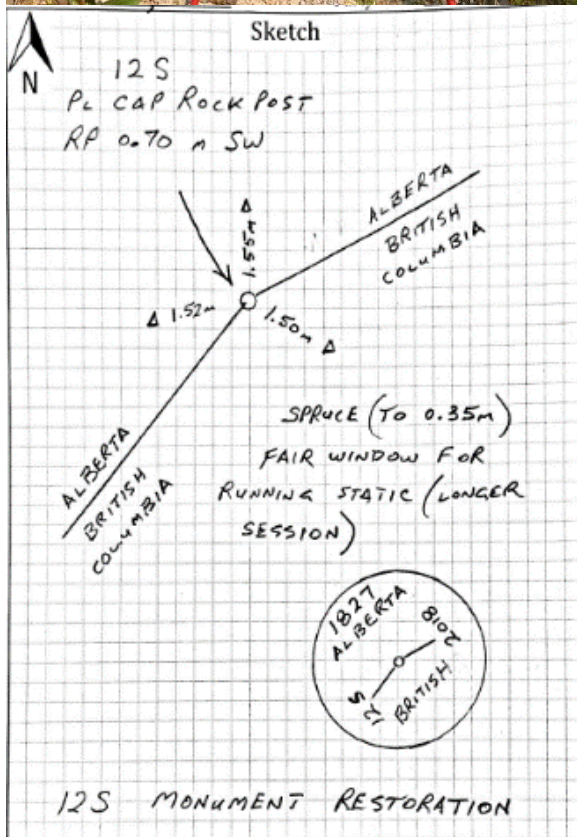 Sketch
N
12 S
PL CAP ROCK POST
RP 0.70 m SW
ALBERTA
BRITISH
COLUMBIA
Δ 1.55m
Δ 1.52m
1.50m Δ
ALBERTA
BRITISH
COLUMBIA
SPRUCE (TO 0.35m)
FAIR WINDOW FOR
RUNNING STATIC (LONGER
SESSION)
1827
ALBERTA
2018
12 S
BRITISH
12S MONUMENT RESTORATION